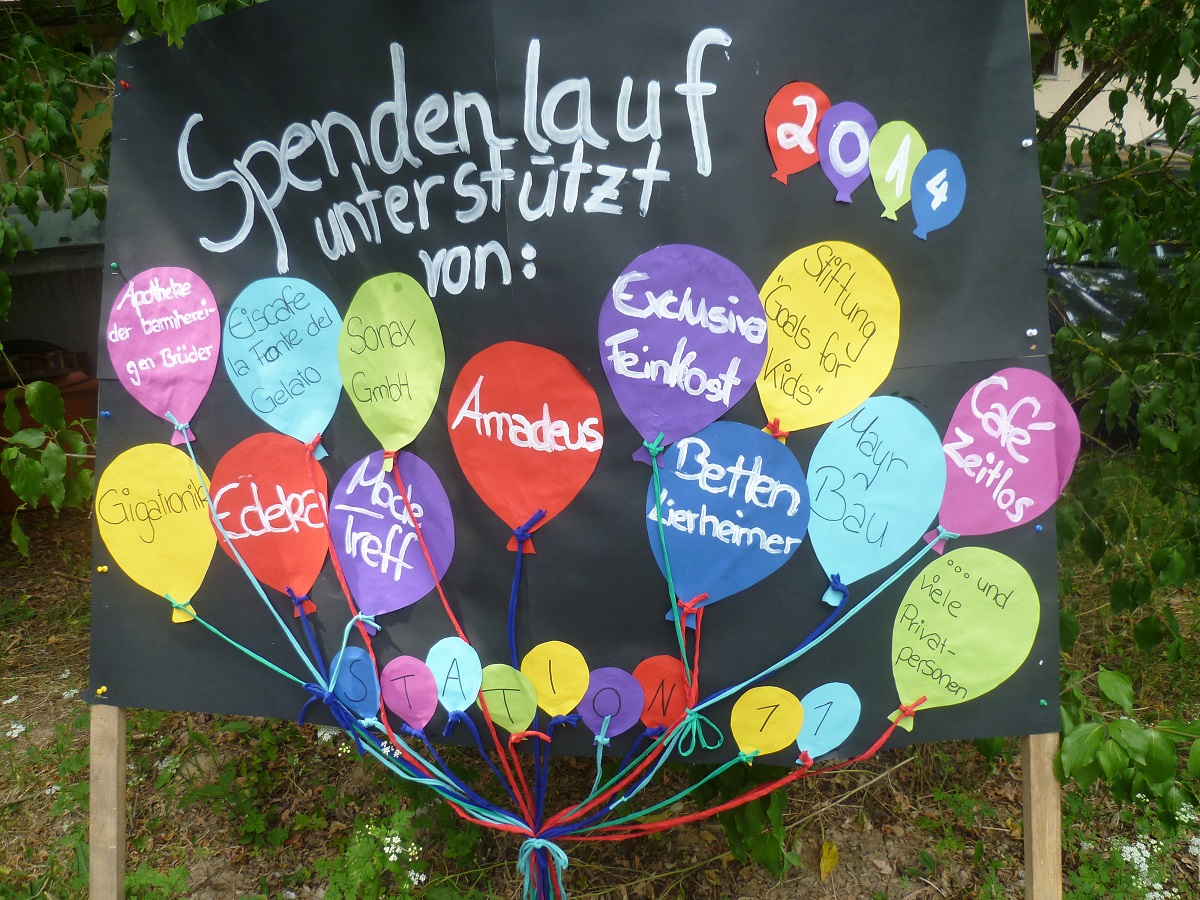 Spendenlauf
unterstützt
von:
2014
Apotheke
der barmherzi-
gen Brüder
Eiscafe
la Fronte del
Gelato
Sonax
GmbH
Amadeus
Exclusiva
Feinkost
Stiftung
"Goals for
Kids"
Gigatronik
Edeka
Mode
Treff
Betten
Zierheimer
Mayr
Bau
Café
Zeitlos
... und
viele
Privat-
personen
STATION 11